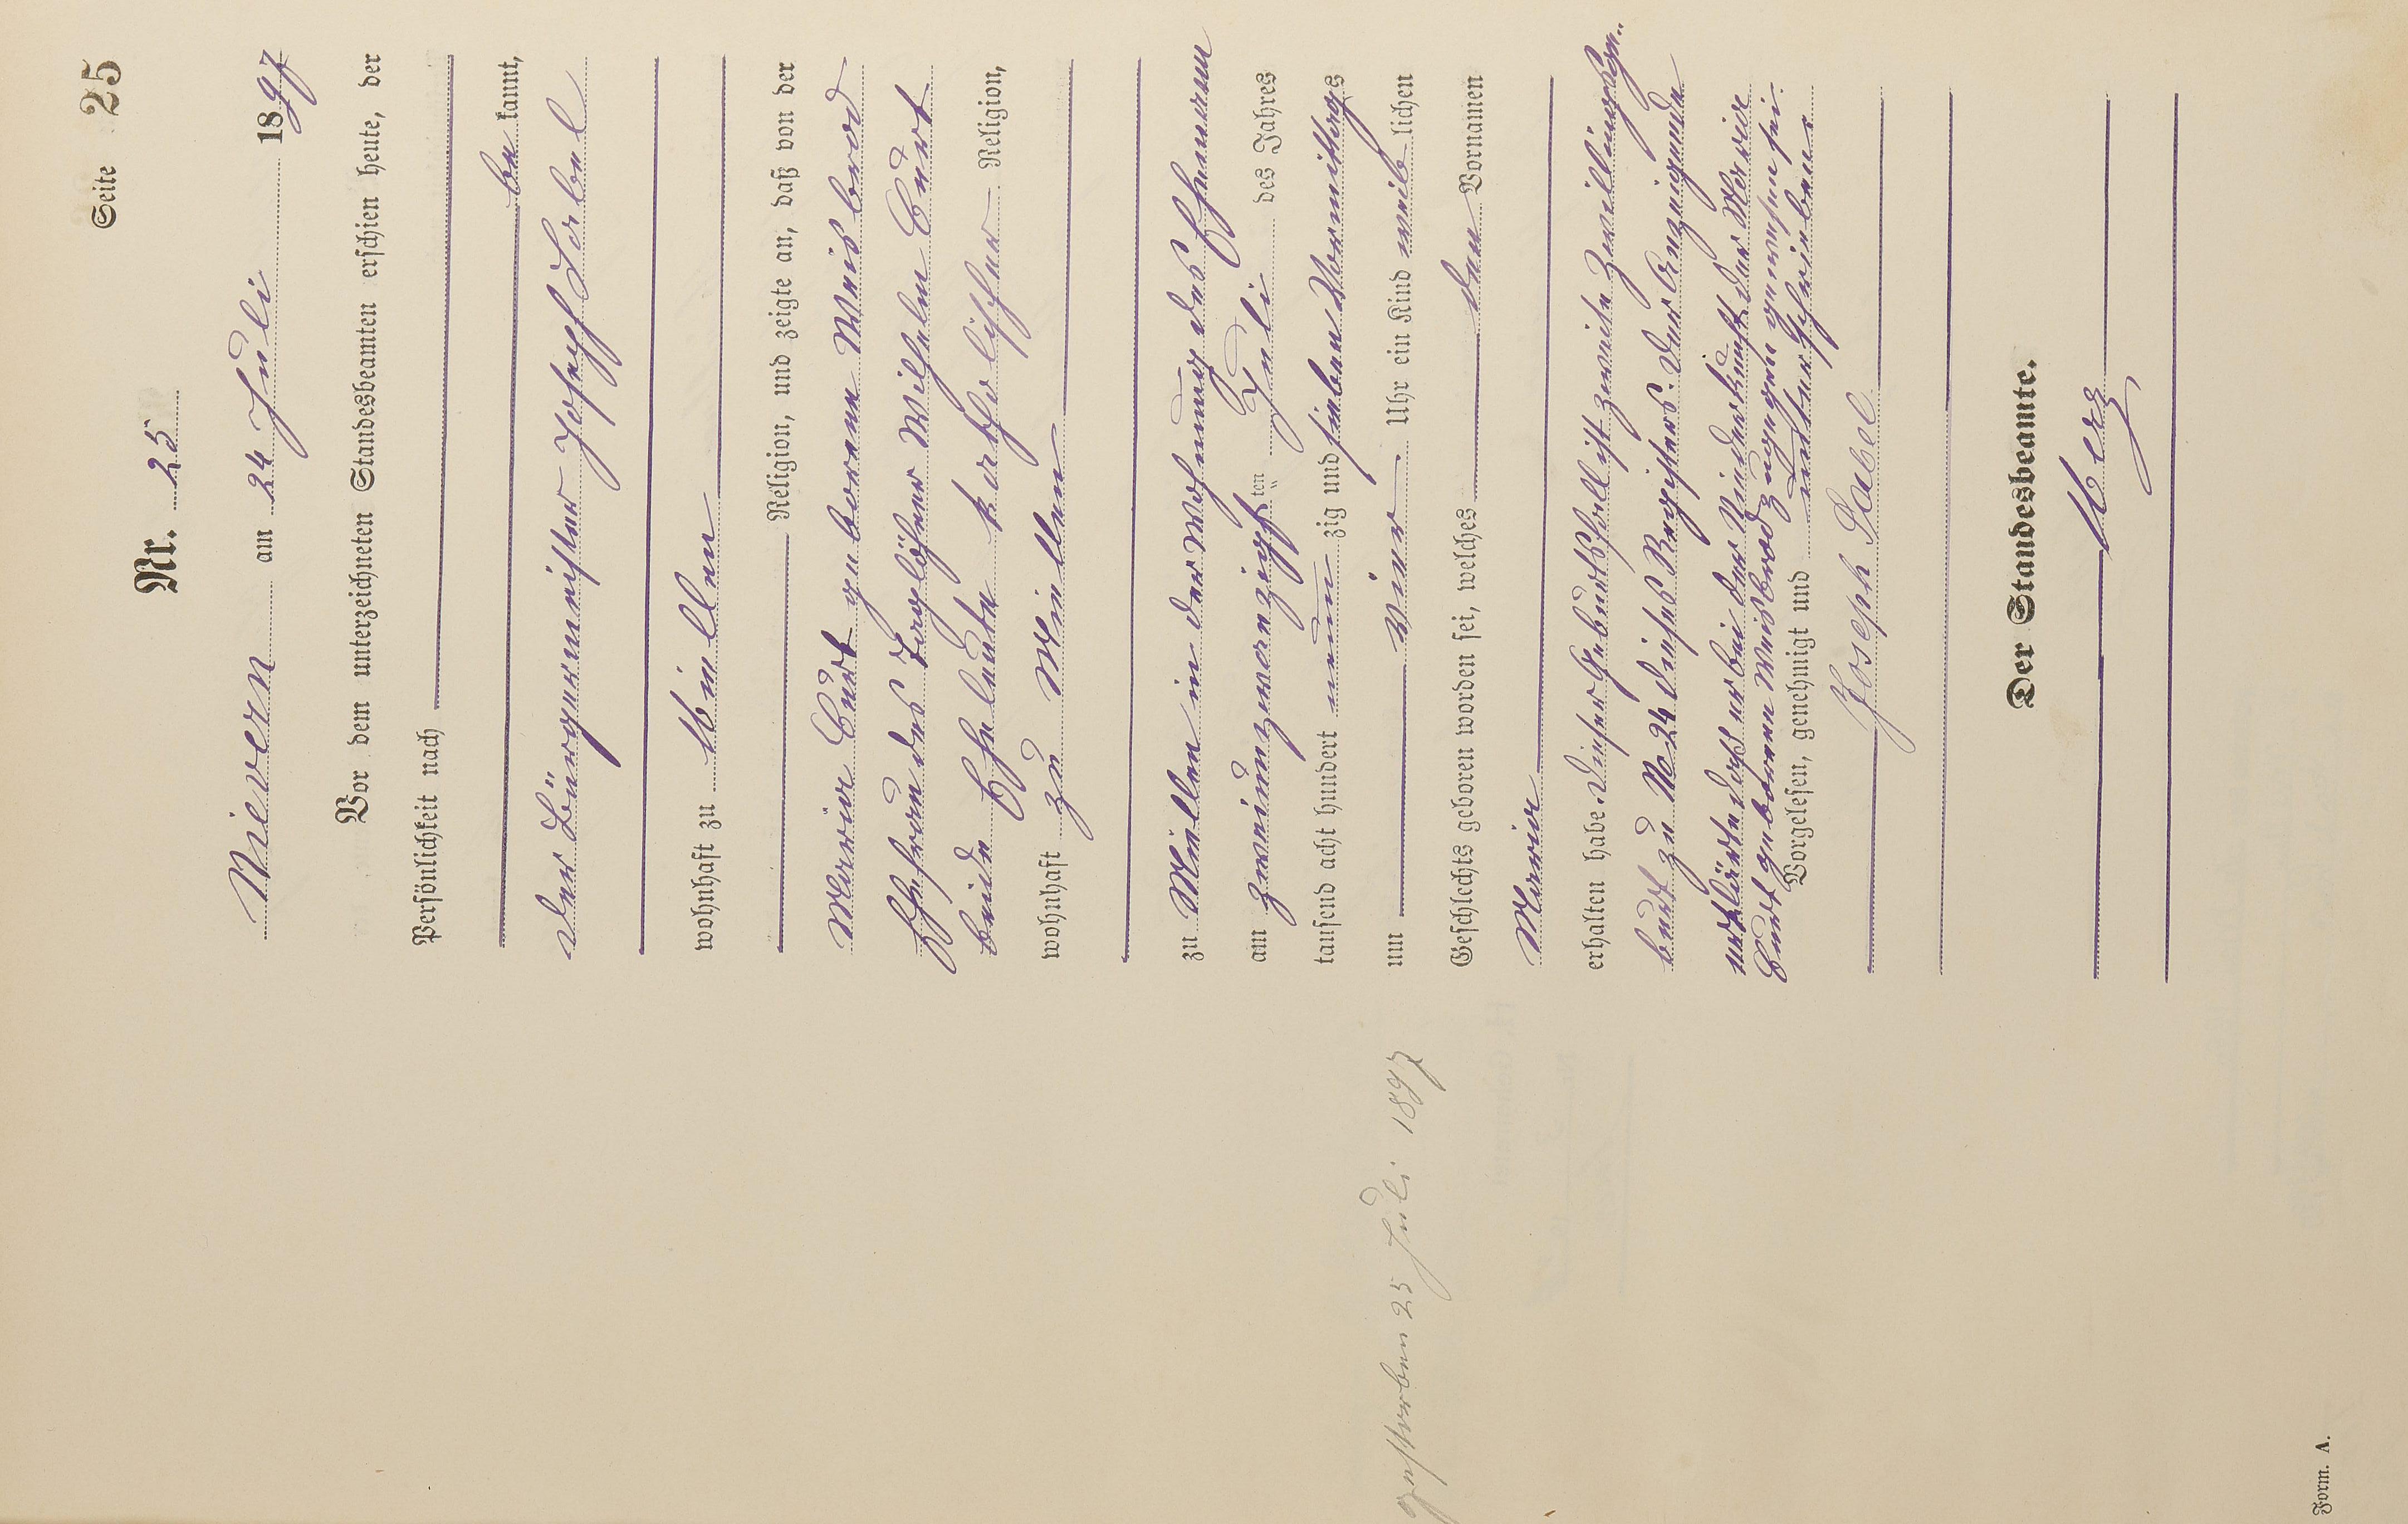 Seite 25
Nr. 25
Nievern am 24 Juli 1897
Vor dem unterzeichneten Standesbeamten erschien heute, der
Persönlichkeit nach
be kannt,
der Bürgermeister Joseph Sabel
wohnhaft zu Miellen
Religion, und zeigte an, daß von der
Maria Curt geborene Meisbrod
Ehefrau des Taglöhner Wilhelm Curt
beide Eheleute katholischer Religion,
wohnhaft zu Miellen
zu Miellen in der Wohnung des Ehemann
am zweiundzwanzigsten Juli des Jahres
tausend acht hundert neun zig und sieben Vormittags
um vier Uhr ein Kind weib lichen
Geschlechts geboren worden sei, welches den Vornamen
Maria
erhalten habe. Dieser Geburtsfall ist zweite Zwillingsge-
burt zu No 24 dieses Registers. Der Anzeigende
erklärte daß er bei der Niederkunft der Maria
Curt geborene Meisbrod zugegen gewesen sei.
Vorgelesen, genehmigt und unterschrieben
Joseph Sabel
Der Standesbeamte.
Merz
gestorben 25 Juli 1897
Form. A.